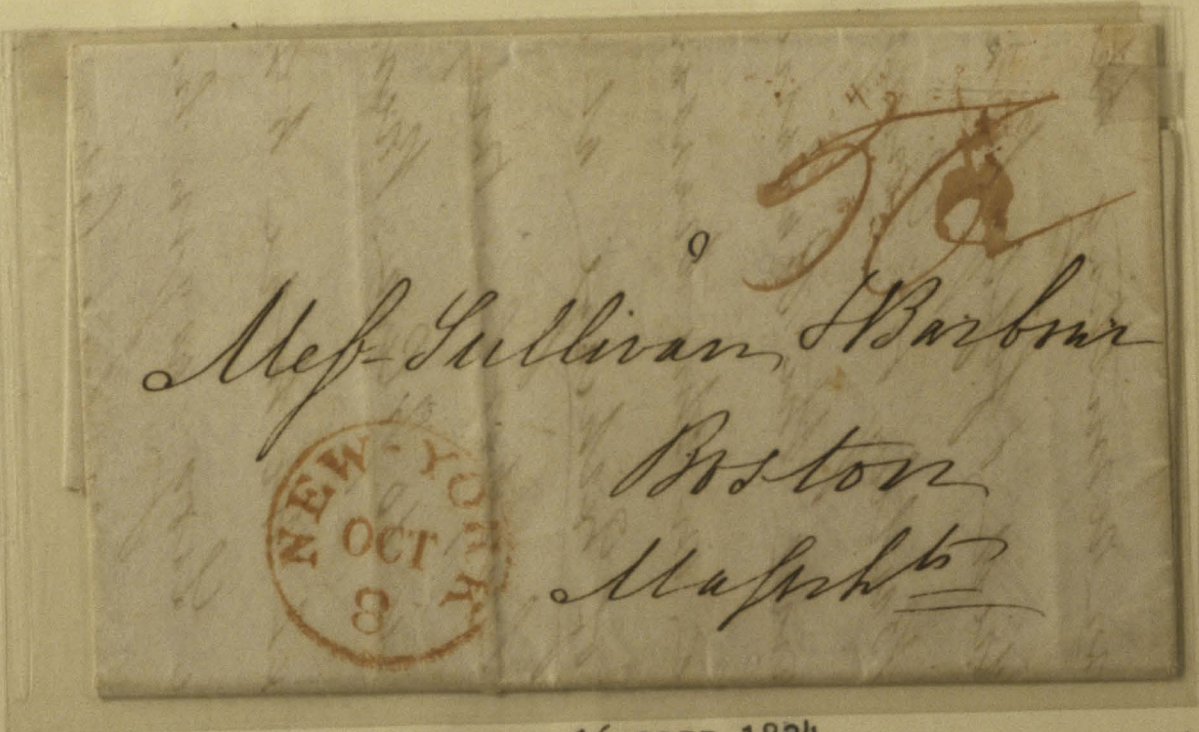 Mess Sullivan & Barbour
Boston
Masschts
NEW-YORK
OCT
8